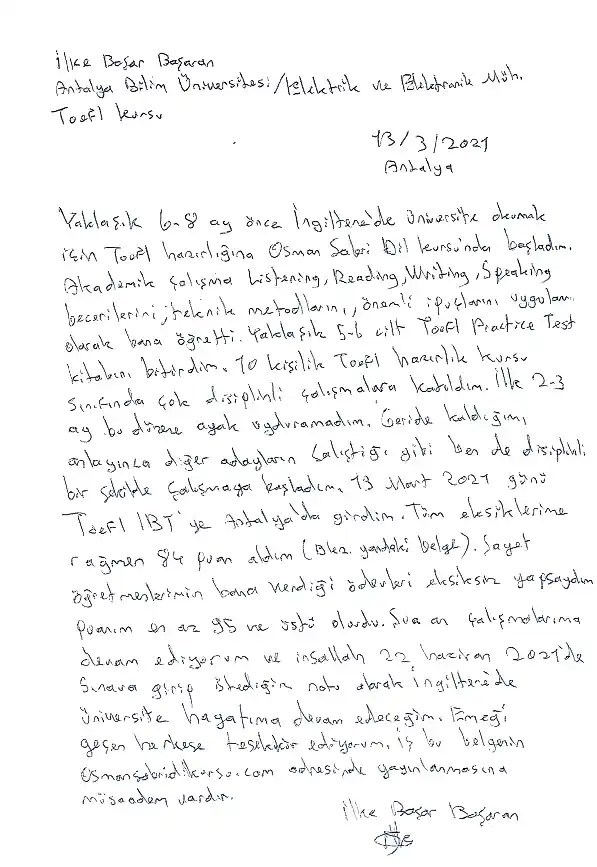 İlke Başar Başaran
Antalya Bilim Üniversitesi/Elektrik ve Elektronik Müh.
Toefl kursu
13/3/2021
Antalya
Yaklaşık 6-8 ay önce İngiltere'de üniversite okumak
için Toefl hazırlığına Osman Sabri Dil kursu'nda başladım.
Akademik çalışma Listening, Reading, Writing, Speaking
becerilerini, teknik metodlarını, önemli ipuçlarını uygulam
olarak bana öğretti. Yaklaşık 5-6 cilt Toefl Practice Test
kitabını bitirdim. 10 kişilik Toefl hazırlık kursu
sınıfında çok disiplinli çalışmalara katıldım. İlk 2-3
ay bu düzene ayak uyduramadım. Geride kaldığımı
anlayınca diğer adayların çalıştığı gibi ben de disiplinli
bir şekilde çalışmaya başladım. 13 Mart 2021 günü
Toefl IBT'ye Antalya'da girdim. Tüm eksiklerime
rağmen 84 puan aldım (Bkz. yandaki belge). Şayet
öğretmenlerimin bana verdiği ödevleri eksiksiz yapsaydım
puanım en az 95 ve üstü olurdu. Şua an çalışmalarıma
devam ediyorum ve inşallah 22 haziran 2021'de
Sınava girip istediğim notu alarak İngiltere'de
üniversite hayatıma devam edeceğim. Emeği
geçen herkese teşekkür ediyorum, iş bu belgenin
osmansabridilkursu.com adresinde yayınlanmasına
müsaadem vardır.
İlke Başar Başaran